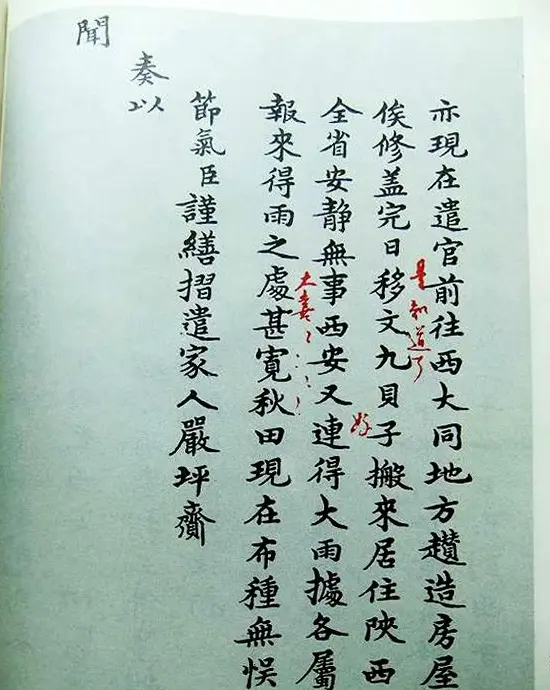 亦現在遣官前往西大同地方趲造房屋
是知道了
俟修盖完日移文九貝子搬來居住陝西
好
全省安静無事西安又連得大雨據各屬
大喜
報來得雨之處甚寛秋田現在布種無悞
節氣臣謹繕摺遣家人嚴坪齎
奏以
聞